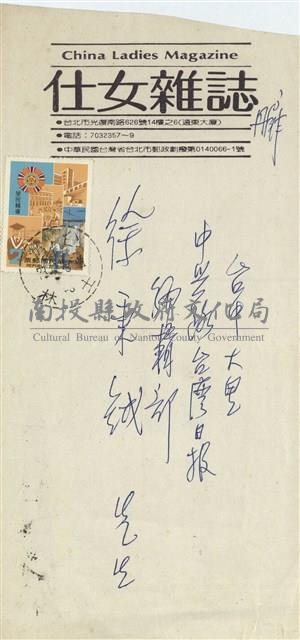 China Ladies Magazine
仕女雜誌
●台北市光復南路626號14樓之6(遠東大廈)
●電話：7032357～9
●中華民國台灣省台北市郵政劃撥第0140066-1號
台中大里
中興路台灣日報
編輯部
徐秉鉞 先生
南投縣政府文化局
Cultural Bureau of Nantou County Government